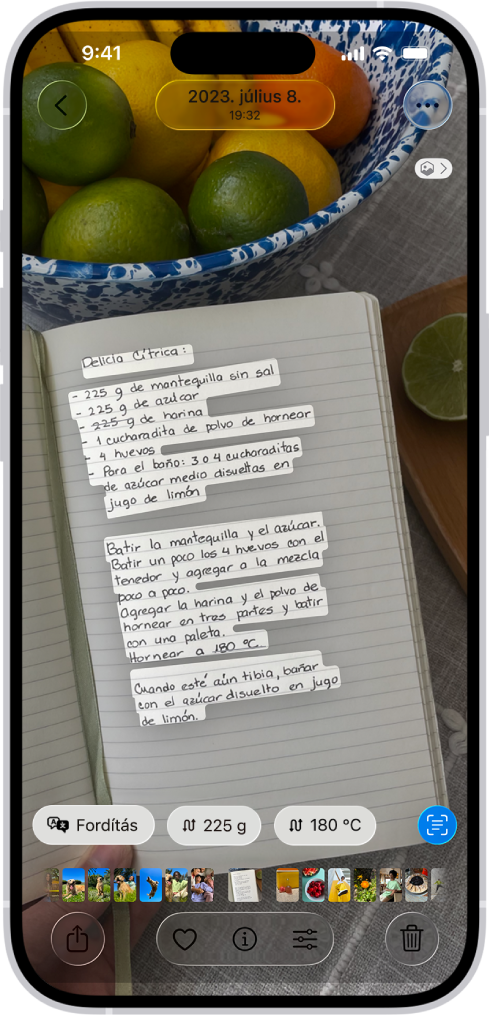 9:41
2023. július 8.
19:32
Delicia Cítrica:
- 225 g de mantequilla sin sal
- 225 g de azúcar
- 225 g de harina
- 1 cucharadita de polvo de hornear
- 4 huevos
- Para el baño: 3 o 4 cucharaditas
de azúcar medio disueltas en
jugo de limón
Batir la mantequilla y el azúcar.
Batir un poco los 4 huevos con el
tenedor y agregar a la mezcla
poco a poco.
Agregar la harina y el polvo de
hornear en tres partes y batir
con una paleta.
Hornear a 180 °C.
Cuando esté aún tibia, bañar
con el azúcar disuelto en jugo
de limón.
Fordítás
225 g
180 °C